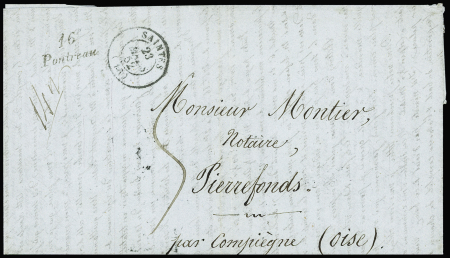 16
Pontreau
SAINTES
23
Monsieur Montier,
Notaire,
Pierrefonds.
par Compiègne (Oise).